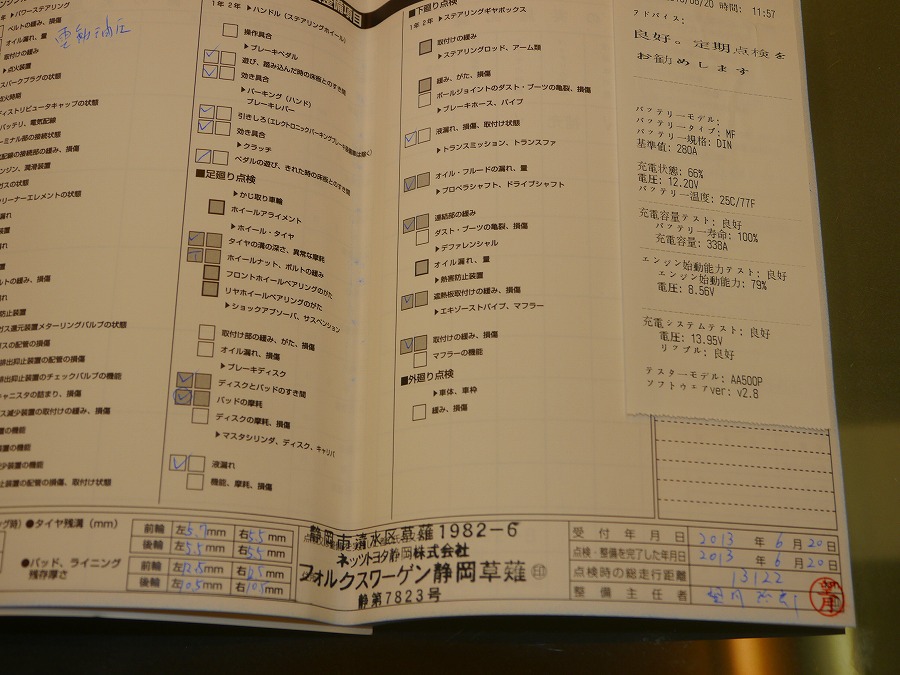 パワーステアリング
ベルトの緩み、損傷
オイル漏れ、量
取付けの緩み
電動油圧
点火装置
スパークプラグの状態
点火時期
ディストリビュータキャップの状態
バッテリ、電気配線
ターミナル部の接続状態
配線の接続部の緩み、損傷
エンジン、潤滑装置
ガスの状態
クリーナーエレメントの状態
漏れ
ルトの緩み、損傷
防止装置
ガス還元装置メターリングバルブの状態
ガスの配管の損傷
排出抑止装置の配管の損傷
排出抑止装置のチェックバルブの機能
キャニスタの詰まり、損傷
ス減少装置の取付けの緩み、損傷
置の機能
少装置の機能
止装置の配管の損傷、取付け状態
1年 2年 ▶ハンドル (ステアリングホイール)
操作具合
▶ブレーキペダル
遊び、踏み込んだ時の床板とのすき間
効き具合
▶パーキング (ハンド)
ブレーキレバー
引きしろ (エレクトロニックパーキングブレーキ
効き具合
▶クラッチ
ペダルの遊び、きれた時の床板とのすき間
■足廻り点検
▶かじ取り車輪
ホイールアライメント
▶ホイール・タイヤ
タイヤの溝の深さ、異常な摩耗
ホイールナット、ボルトの緩み
フロントホイールベアリングのがた
リヤホイールベアリングのがた
▶ショックアブソーバ、サスペンション
取付け部の緩み、がた、損傷
オイル漏れ、損傷
▶ブレーキディスク
ディスクとパッドのすき間
パッドの摩耗
ディスクの摩耗、損傷
▶マスタシリンダ、ディスク、キャリパ
液漏れ
機能、摩耗、損傷
■下廻り点検
1年 2年 ▶ステアリングギヤボックス
取付けの緩み
▶ステアリングロッド、アーム類
緩み、がた、損傷
ボールジョイントのダスト・ブーツの亀裂、損傷
▶ブレーキホース、パイプ
液漏れ、損傷、取付け状態
▶トランスミッション、トランスファ
オイル・フルードの漏れ、量
▶プロペラシャフト、ドライブシャフト
連結部の緩み
ダスト・ブーツの亀裂、損傷
▶デファレンシャル
オイル漏れ、量
▶熱害防止装置
遮熱板取付けの緩み、損傷
▶エキゾーストパイプ、マフラー
取付けの緩み、損傷
マフラーの機能
■外廻り点検
▶車体、車枠
緩み、損傷
06/20 時間: 11:57
アドバイス:
良好。定期点検を
お勧めします
バッテリーモデル:
バッテリータイプ: MF
バッテリー規格: DIN
基準値: 280A
充電状態: 66%
電圧: 12.20V
バッテリー温度: 25C/77F
充電容量テスト: 良好
バッテリー寿命: 100%
充電容量: 338A
エンジン始動能力テスト: 良好
エンジン始動能力: 79%
電圧: 8.56V
充電システムテスト: 良好
電圧: 13.95V
リップル: 良好
テスターモデル: AA500P
ソフトウェアver: v2.8
●タイヤ残溝 (mm)
前輪 左5.7mm 右5.5mm
後輪 左5.5mm 右5.5mm
●パッド、ライニング
残存厚さ
前輪 左12.5mm 右12.5mm
後輪 左10.5mm 右10.5mm
静岡市清水区草薙1982-6
ネッツトヨタ静岡株式会社
フォルクスワーゲン静岡草薙 ㊞
静第7823号
受付年月日 2013年6月20日
点検・整備を完了した年月日 2013年6月20日
点検時の総走行距離 13122
整備主任者
望月